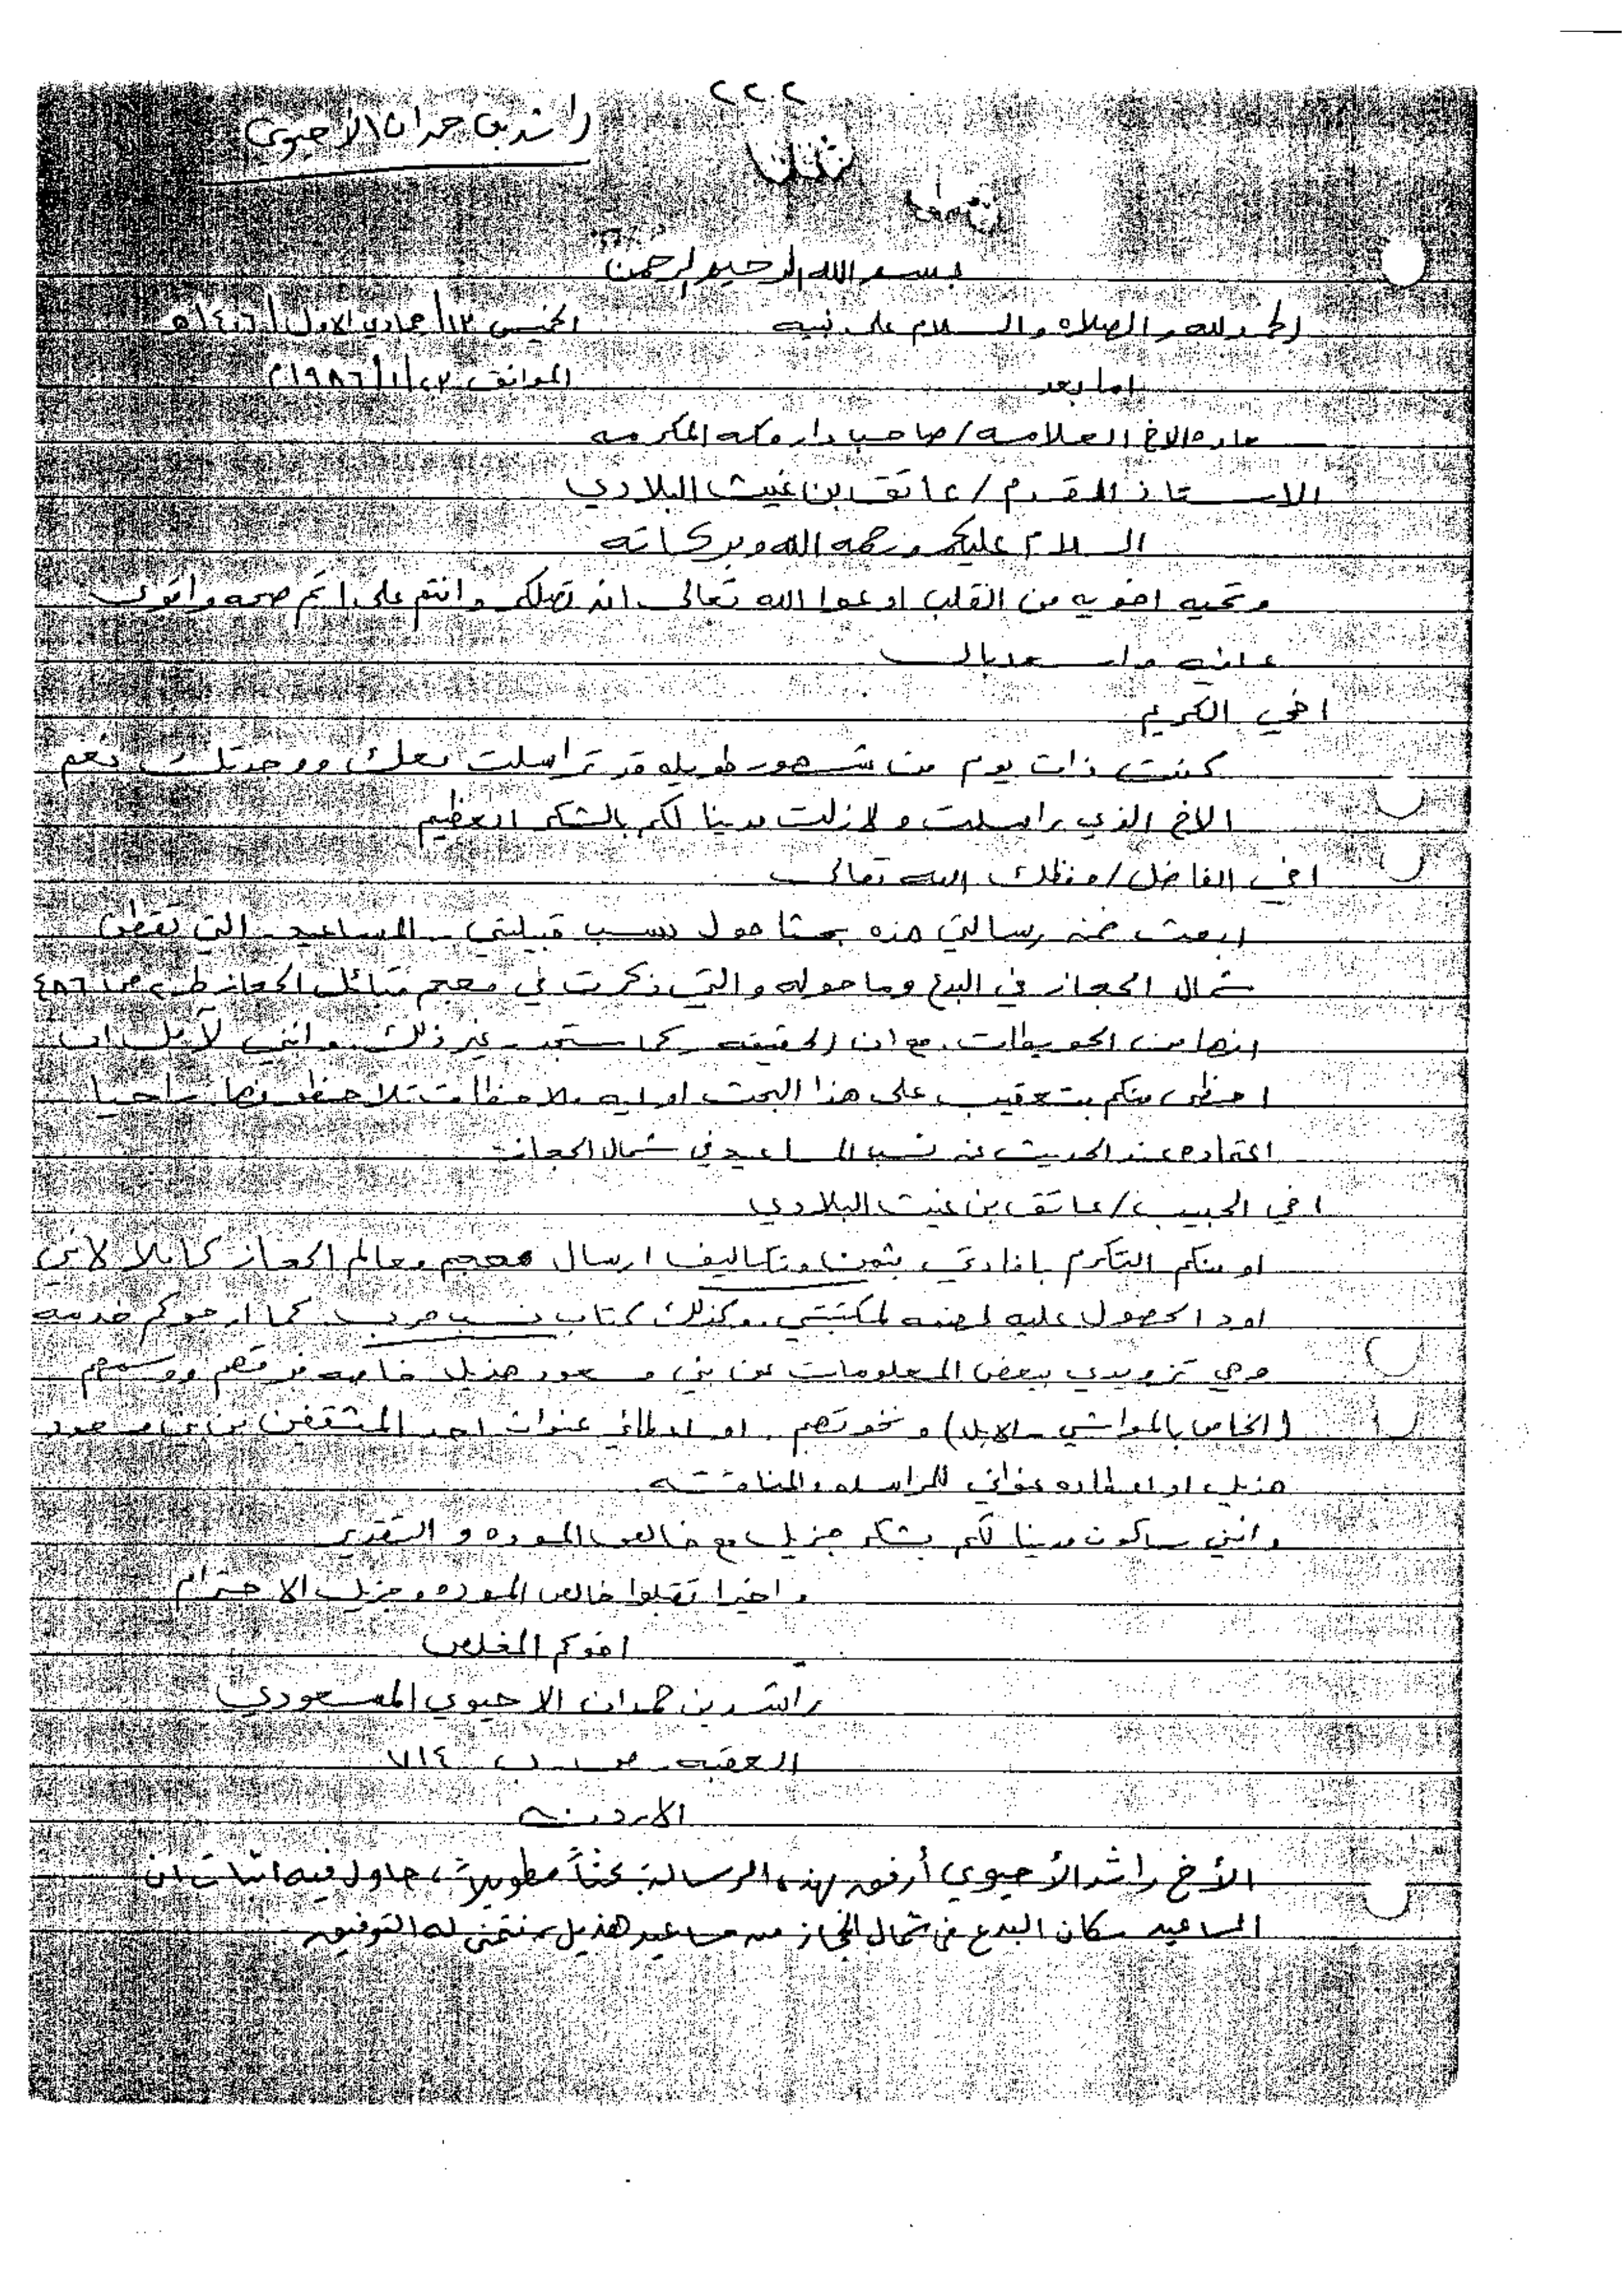 ٢٢٢
راشد بن حمدان الأحيوي
بسم الله الرحيم الرحمن
الحمد لله والصلاه والسلام على نبيه
الخميس ١٢/جمادي الاول/١٤٠٦هـ
اما بعد
الموافق ٢٣/١/١٩٨٦م
الاخ العلامه/صاحب دار مكه المكرمه
الاستاذ المقدم/عاتق بن غيث البلادي
السلام عليكم ورحمه الله وبركاته
وتحيه اخويه من القلب ادعوا الله تعالى ان تصلكم وانتم على اتم صحه واقوى
عافيه واسعد بال
اخي الكريم
كنت ذات يوم من شهور طويله قد تراسلت معك ووجدتك نعم
الاخ الذي راسلت ولازلت مدينا لكم بالشكر العظيم
اخي الفاضل/حفظك الله تعالى
ابعث ضمن رسالتي هذه بحثا حول نسب قبيلتي - المساعيد - التي تقطن
شمال الحجاز في البدع وما حوله والتي ذكرت في معجم قبائل الحجاز ط٢ ص٤٨٦
انها من الحويطات. مع ان الحقيقه كما ستجد - غير ذلك. وانني لآمل ان
احظى منكم بتعقيب على هذا البحث او ايه ملاحظات تلاحظونها راجيا
اعتماده عند الحديث عن نسب المساعيد في شمال الحجاز
اخي الحبيب/عاتق بن غيث البلادي
منكم التكرم بافادتي بثمن وتكاليف ارسال معجم معالم الحجاز كاملا لانني
اود الحصول عليه لضمه لمكتبتي. وكذلك كتاب نسب حرب. كما ارجوكم خدمه
وهي تزويدي ببعض المعلومات عن بني مسعود هذيل خاصه فرقهم ووسمهم
(الخاص بالمواشي - الابل) ونخوتهم. او اعطائي عنوان احد المثقفين من بني مسعود
هذيل او اعطاءه عنواني للمراسله والمناقشه
وانني ساكون مدينا لكم بشكر جزيل مع خالص الموده والتقدير
واخيرا تقبلوا خالص الموده وجزيل الاحترام
اخوكم المخلص
راشد بن حمدان الاحيوي المسعودي
العقبه - ص.ب ٧١٤
الاردن
الأخ راشد الأحيوي أرفق بهذه الرسالة بحثاً مطولاً، حاول فيه اثبات ان
المساعيد سكان البدع في شمال الحجاز من مساعيد هذيل، نتمنى له التوفيق